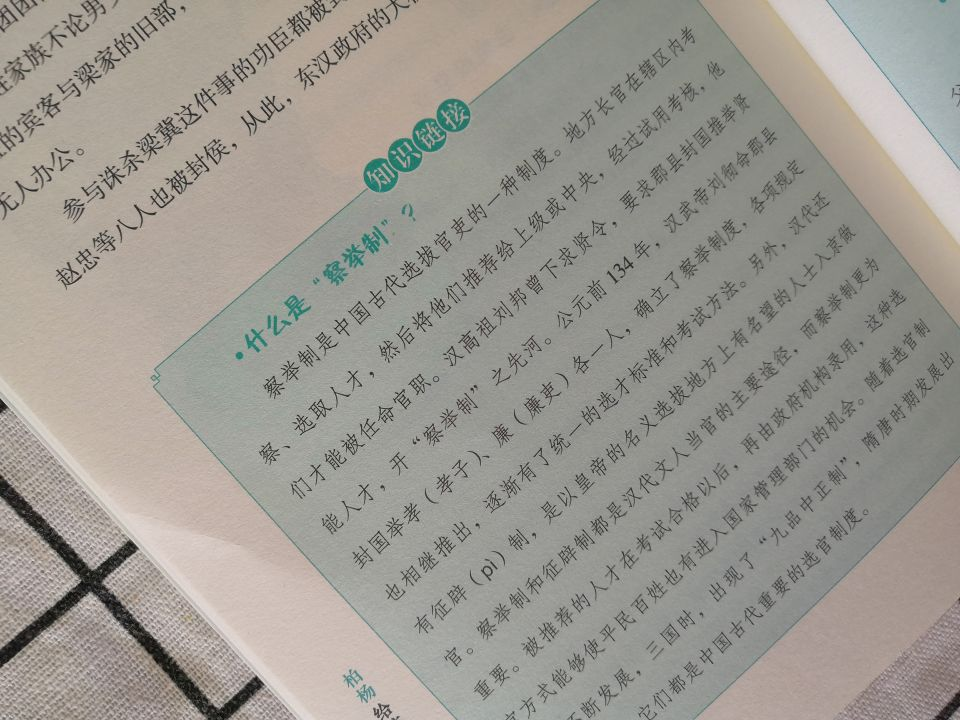 团团
在家族不论男
的宾客与梁家的旧部，
无人办公。
参与诛杀梁冀这件事的功臣都被
赵忠等八人也被封侯，从此，东汉政府的大
知识链接
·什么是“察举制”？
察举制是中国古代选拔官吏的一种制度。地方长官在辖区内考
察、选取人才，然后将他们推荐给上级或中央，经过试用考核，他
们才能被任命官职。汉高祖刘邦曾下求贤令，要求郡县封国推举贤
能人才，开“察举制”之先河。公元前134年，汉武帝刘彻命郡县
封国举孝（孝子）、廉（廉吏）各一人，确立了察举制度，各项规定
也相继推出，逐渐有了统一的选才标准和考试方法。另外，汉代还
有征辟（pì）制，是以皇帝的名义选拔地方上有名望的人士入京做
官。察举制和征辟制都是汉代文人当官的主要途径，而察举制更为
重要。被推荐的人才在考试合格以后，再由政府机构录用，这种选
官方式能够使平民百姓也有进入国家管理部门的机会。随着选官制
不断发展，三国时，出现了“九品中正制”，隋唐时期发展出
它们都是中国古代重要的选官制度。
柏杨给
父